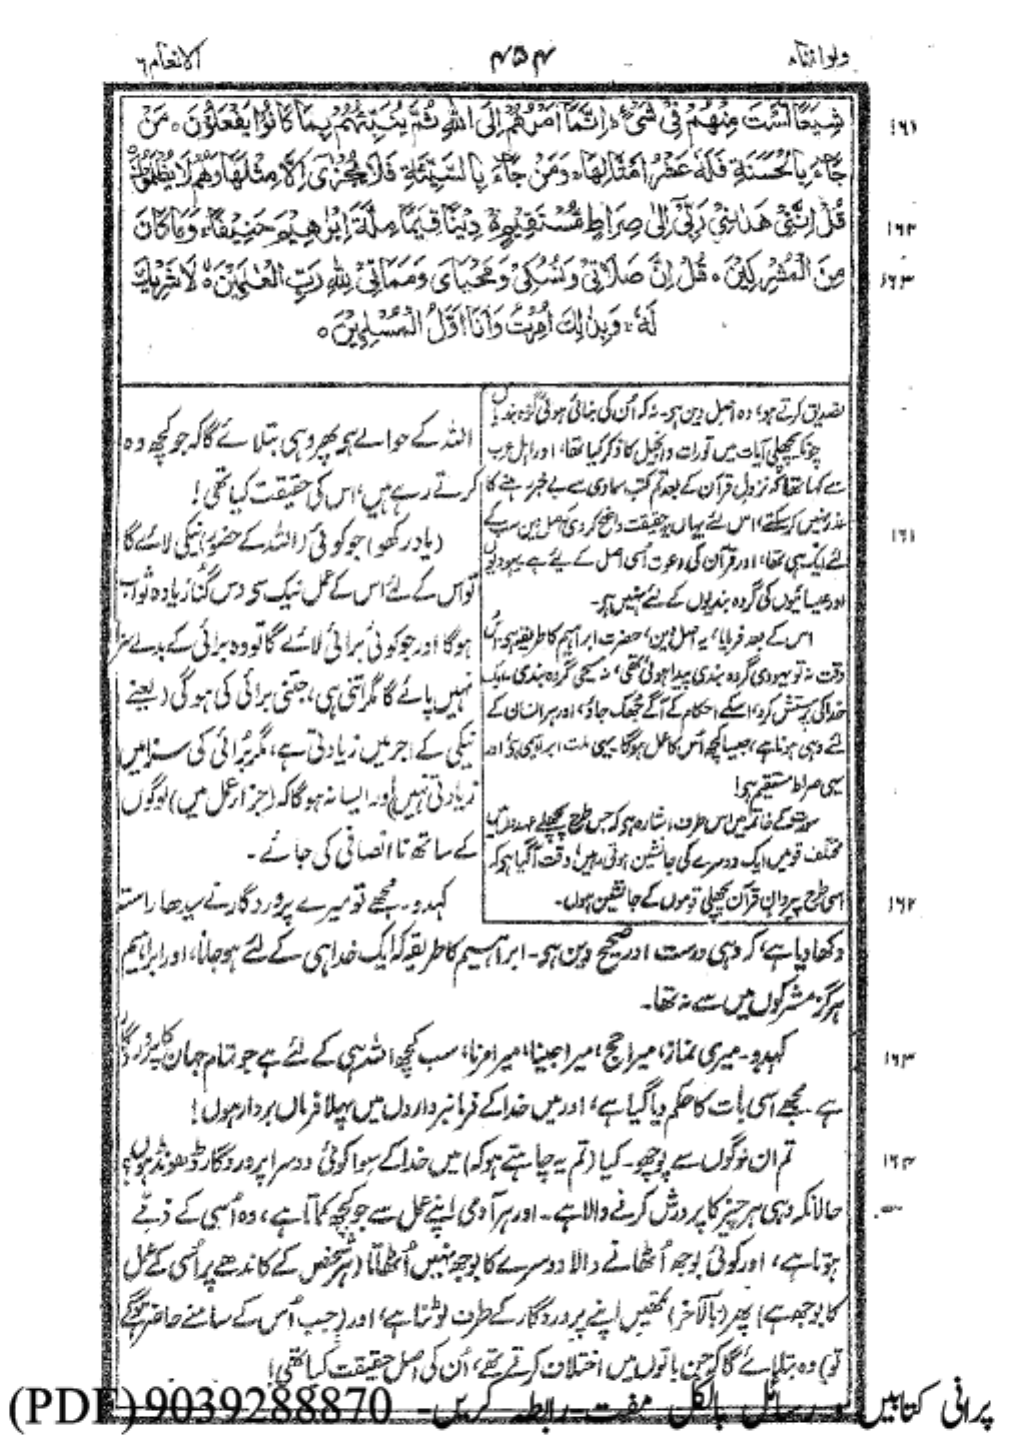 ولو اننا ۸
۴۵۴
الانعام ۶
شِيَعًا لَّسْتَ مِنْهُمْ فِيْ شَيْءٍ ؕ اِنَّمَاۤ اَمْرُهُمْ اِلَى اللّٰهِ ثُمَّ يُنَبِّئُهُمْ بِمَا كَانُوْا يَفْعَلُوْنَ ○ مَنْ
۱۶۱
جَآءَ بِالْحَسَنَةِ فَلَهٗ عَشْرُ اَمْثَالِهَا ۚ وَمَنْ جَآءَ بِالسَّيِّئَةِ فَلَا يُجْزٰٓى اِلَّا مِثْلَهَا وَهُمْ لَا يُظْلَمُوْنَ
قُلْ اِنَّنِيْ هَدٰىنِيْ رَبِّيْٓ اِلٰى صِرَاطٍ مُّسْتَقِيْمٍ ۚ دِيْنًا قِيَمًا مِّلَّةَ اِبْرٰهِيْمَ حَنِيْفًا ۚ وَمَا كَانَ
۱۶۲
مِنَ الْمُشْرِكِيْنَ ○ قُلْ اِنَّ صَلَاتِيْ وَنُسُكِيْ وَمَحْيَايَ وَمَمَاتِيْ لِلّٰهِ رَبِّ الْعٰلَمِيْنَ ○ لَا شَرِيْكَ
۱۶۳
لَهٗ ۚ وَبِذٰلِكَ اُمِرْتُ وَاَنَا اَوَّلُ الْمُسْلِمِيْنَ ○
تصدیق کرتے ہو؛ وہ اصل دین ہی۔ نہ کہ اُن کی بنائی ہوئی گروہ بندیاں
چونکہ پچھلی آیات میں تورات و انجیل کا ذکر کیا تھا، اور اہل عرب
سے کہا تھا کہ نزول قرآن کے بعد تم کتب سماوی سے بے خبر رہنے کا
عذر نہیں کر سکتے، اس لئے یہاں یہ حقیقت واضح کر دی کہ اصل دین سب کے
لئے ایک ہی تھا، اور قرآن کی دعوت اُسی اصل کے لیے ہے۔ یہودیوں
اور عیسائیوں کی گروہ بندیوں کے لئے نہیں ہی۔
اس کے بعد فرمایا، یہ اصل دین، حضرت ابراہیم کا طریقہ ہی۔ اُس
وقت نہ تو یہودی گروہ بندی پیدا ہوئی تھی، نہ مسیحی گروہ بندی۔ ایک
خدا کی پرستش کرو، اسکے احکام کے آگے جھک جاؤ، اور ہر انسان کے
لئے وہی ہونا ہے، جیسا کچھ اُس کا عمل ہوگا۔ یہی ملت ابراہیمی ہی اور
یہی صراط مستقیم ہی!
سورت کے خاتمہ میں اس طرف اشارہ ہی کہ جس طرح پچھلے عہدوں میں
مختلف قومیں ایک دوسرے کی جانشین ہوتی رہیں، وقت آ گیا ہی کہ
اسی طرح پیروان قرآن پچھلی قوموں کے جانشین ہوں۔
اللہ کے حوالے ہی پھر وہی بتلائے گا کہ جو کچھ وہ
کرتے رہے ہیں، اس کی حقیقت کیا تھی!
(یاد رکھو) جو کوئی (اللہ کے حضور) نیکی لائے گا
۱۶۱
تو اُس کے لئے اس کے عمل نیک سے دس گنا زیادہ ثواب
ہوگا اور جو کوئی بُرائی لائے گا تو وہ برائی کے بدلے سزا
نہیں پائے گا مگر اتنی ہی، جتنی برائی کی ہوگی (یعنے
نیکی کے اجر میں زیادتی ہے، مگر بُرائی کی سزا میں
زیادتی نہیں) اور ایسا نہ ہوگا کہ (جزاء عمل میں) لوگوں
کے ساتھ نا انصافی کی جائے۔
کہدو۔ مجھے تو میرے پروردگار نے سیدھا راستہ
۱۶۲
دکھا دیا ہے، کہ وہی درست اور صحیح دین ہی۔ ابراہیم کا طریقہ کہ ایک خدا ہی کے لئے ہو جانا، اور ابراہیم
ہرگز مشرکوں میں سے نہ تھا۔
کہدو۔ میری نماز، میرا حج، میرا جینا، میرا مرنا، سب کچھ اللہ ہی کے لئے ہے جو تمام جہان کا پروردگار
۱۶۳
ہے۔ مجھے اسی بات کا حکم دیا گیا ہے، اور میں خدا کے فرمانبرداروں میں پہلا فرماں بردار ہوں!
تم ان لوگوں سے پوچھو۔ کیا (تم یہ چاہتے ہو کہ) میں خدا کے سوا کوئی دوسرا پروردگار ڈھونڈھوں؟
۱۶۴
حالانکہ وہی ہر چیز کا پرورش کرنے والا ہے۔ اور ہر آدمی اپنے عمل سے جو کچھ کماتا ہے، وہ اُسی کے ذمے
ہوتا ہے، اور کوئی بوجھ اُٹھانے والا دوسرے کا بوجھ نہیں اُٹھاتا (ہر شخص کے کاندھے پر اُسی کے عمل
کا بوجھ ہے) پھر (بالآخر) تمھیں اپنے پروردگار کے طرف لوٹنا ہے، اور (جب اُس کے سامنے حاضر ہوگے
تو) وہ بتلائے گا کہ جن باتوں میں اختلاف کرتے تھے، اُن کی اصل حقیقت کیا تھی!
پرانی کتابیں و رسائل بالکل مفت۔ رابطہ کریں۔ 9039288870 (PDF)